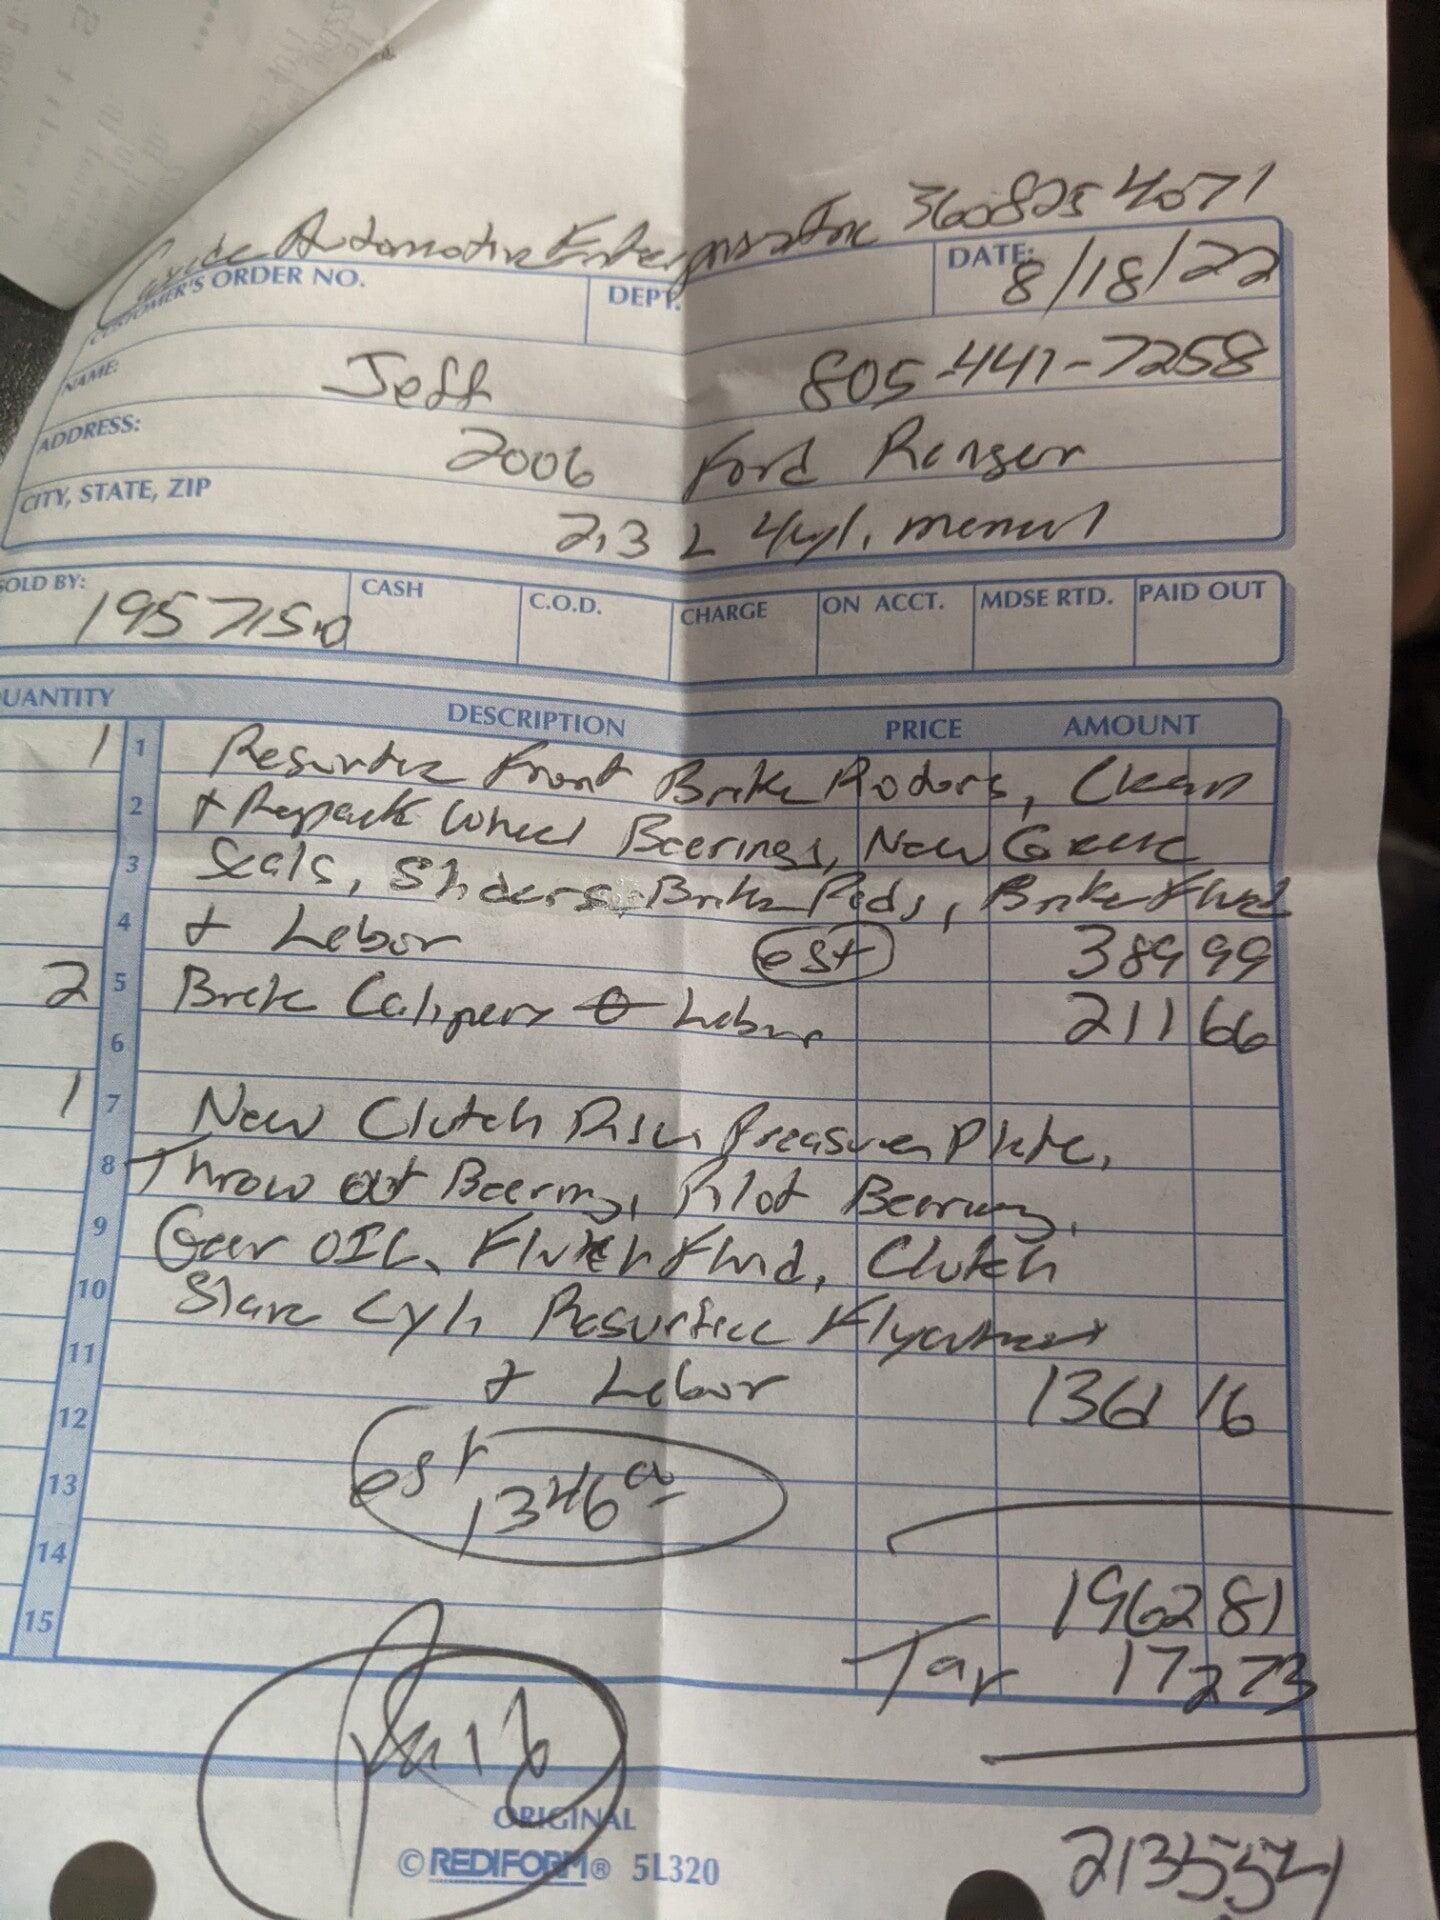 Automotive Enterprises Inc 360 825 4071
CUSTOMER'S ORDER NO. DEPT. DATE: 8/18/22
NAME: Jeff 805-441-7258
ADDRESS: 2006 Ford Ranger
CITY, STATE, ZIP 2.3 L 4cyl. manual
SOLD BY: CASH C.O.D. CHARGE ON ACCT. MDSE RTD. PAID OUT
195715.0
QUANTITY DESCRIPTION PRICE AMOUNT
1 1 Resurface Front Brake Rotors, Clean
2 + Repack Wheel Bearings, New Grease
3 Seals, Sliders, Brake Pads, Brake Fluid
4 + Labor est 389 99
2 5 Brake Calipers + Labor 211 66
6
1 7 New Clutch Disc, Preassure Plate,
8 Throw out Bearing, Pilot Bearing,
9 Gear OIL, Fluid, Clutch
10 Slave Cyl, Resurface Flywheel
11 + Labor 1361 16
12
13 est 1346
14 1962 81
15 Tax 172 73
Paid
ORIGINAL
© REDIFORM® 5L320
2135 54